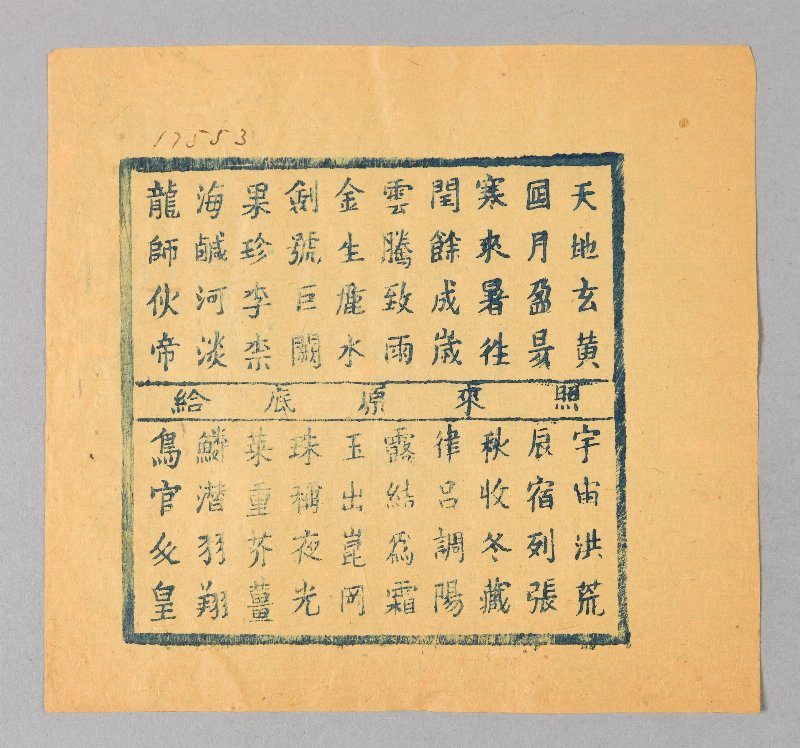 17553
天地玄黃
囸月盈昃
寒來暑徃
閏餘成歲
雲騰致雨
金生麗水
劍號巨闕
果珍李柰
海鹹河淡
龍師伙帝
照來原底給
宇宙洪荒
辰宿列張
秋收冬藏
律呂調陽
露結爲霜
玉出崑岡
珠稱夜光
菜重芥薑
鱗潛羽翔
鳥官皇